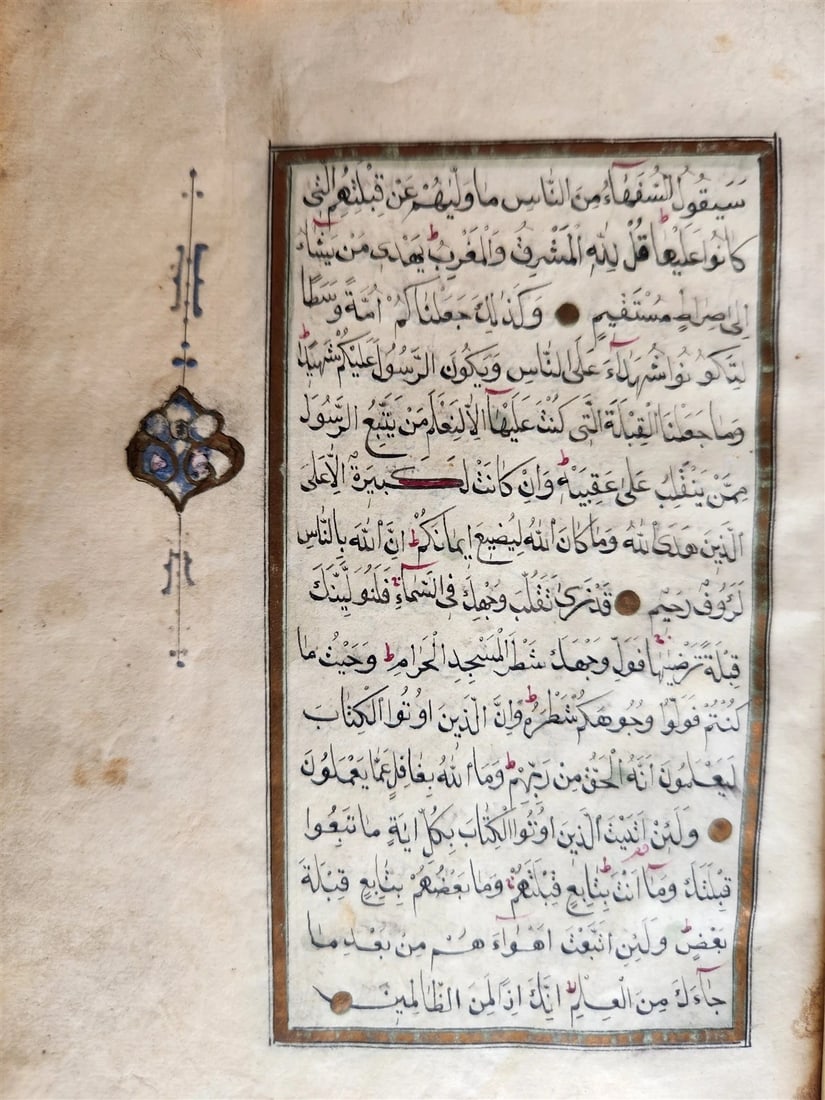 سَيَقُولُ السُّفَهَاءُ مِنَ النَّاسِ مَا وَلّٰيهُمْ عَنْ قِبْلَتِهِمُ الَّتٖى
كَانُوا عَلَيْهَا قُلْ لِلّٰهِ الْمَشْرِقُ وَالْمَغْرِبُ يَهْدٖى مَنْ يَشَاءُ
اِلٰى صِرَاطٍ مُسْتَقٖيمٍ وَكَذٰلِكَ جَعَلْنَاكُمْ اُمَّةً وَسَطًا
لِتَكُونُوا شُهَدَاءَ عَلَى النَّاسِ وَيَكُونَ الرَّسُولُ عَلَيْكُمْ شَهٖيدًا
وَمَا جَعَلْنَا الْقِبْلَةَ الَّتٖى كُنْتَ عَلَيْهَا اِلَّا لِنَعْلَمَ مَنْ يَتَّبِعُ الرَّسُولَ
مِمَّنْ يَنْقَلِبُ عَلٰى عَقِبَيْهِ وَاِنْ كَانَتْ لَكَبٖيرَةً اِلَّا عَلَى
الَّذٖينَ هَدَى اللّٰهُ وَمَا كَانَ اللّٰهُ لِيُضٖيعَ اٖيمَانَكُمْ اِنَّ اللّٰهَ بِالنَّاسِ
لَرَؤُفٌ رَحٖيمٌ قَدْ نَرٰى تَقَلُّبَ وَجْهِكَ فِى السَّمَاءِ فَلَنُوَلِّيَنَّكَ
قِبْلَةً تَرْضٰيهَا فَوَلِّ وَجْهَكَ شَطْرَ الْمَسْجِدِ الْحَرَامِ وَحَيْثُ مَا
كُنْتُمْ فَوَلُّوا وُجُوهَكُمْ شَطْرَهُ وَاِنَّ الَّذٖينَ اُوتُوا الْكِتَابَ
لَيَعْلَمُونَ اَنَّهُ الْحَقُّ مِنْ رَبِّهِمْ وَمَا اللّٰهُ بِغَافِلٍ عَمَّا يَعْمَلُونَ
وَلَئِنْ اَتَيْتَ الَّذٖينَ اُوتُوا الْكِتَابَ بِكُلِّ اٰيَةٍ مَا تَبِعُوا
قِبْلَتَكَ وَمَا اَنْتَ بِتَابِعٍ قِبْلَتَهُمْ وَمَا بَعْضُهُمْ بِتَابِعٍ قِبْلَةَ
بَعْضٍ وَلَئِنِ اتَّبَعْتَ اَهْوَاءَهُمْ مِنْ بَعْدِ مَا
جَاءَكَ مِنَ الْعِلْمِ اِنَّكَ اِذًا لَمِنَ الظَّالِمٖينَ